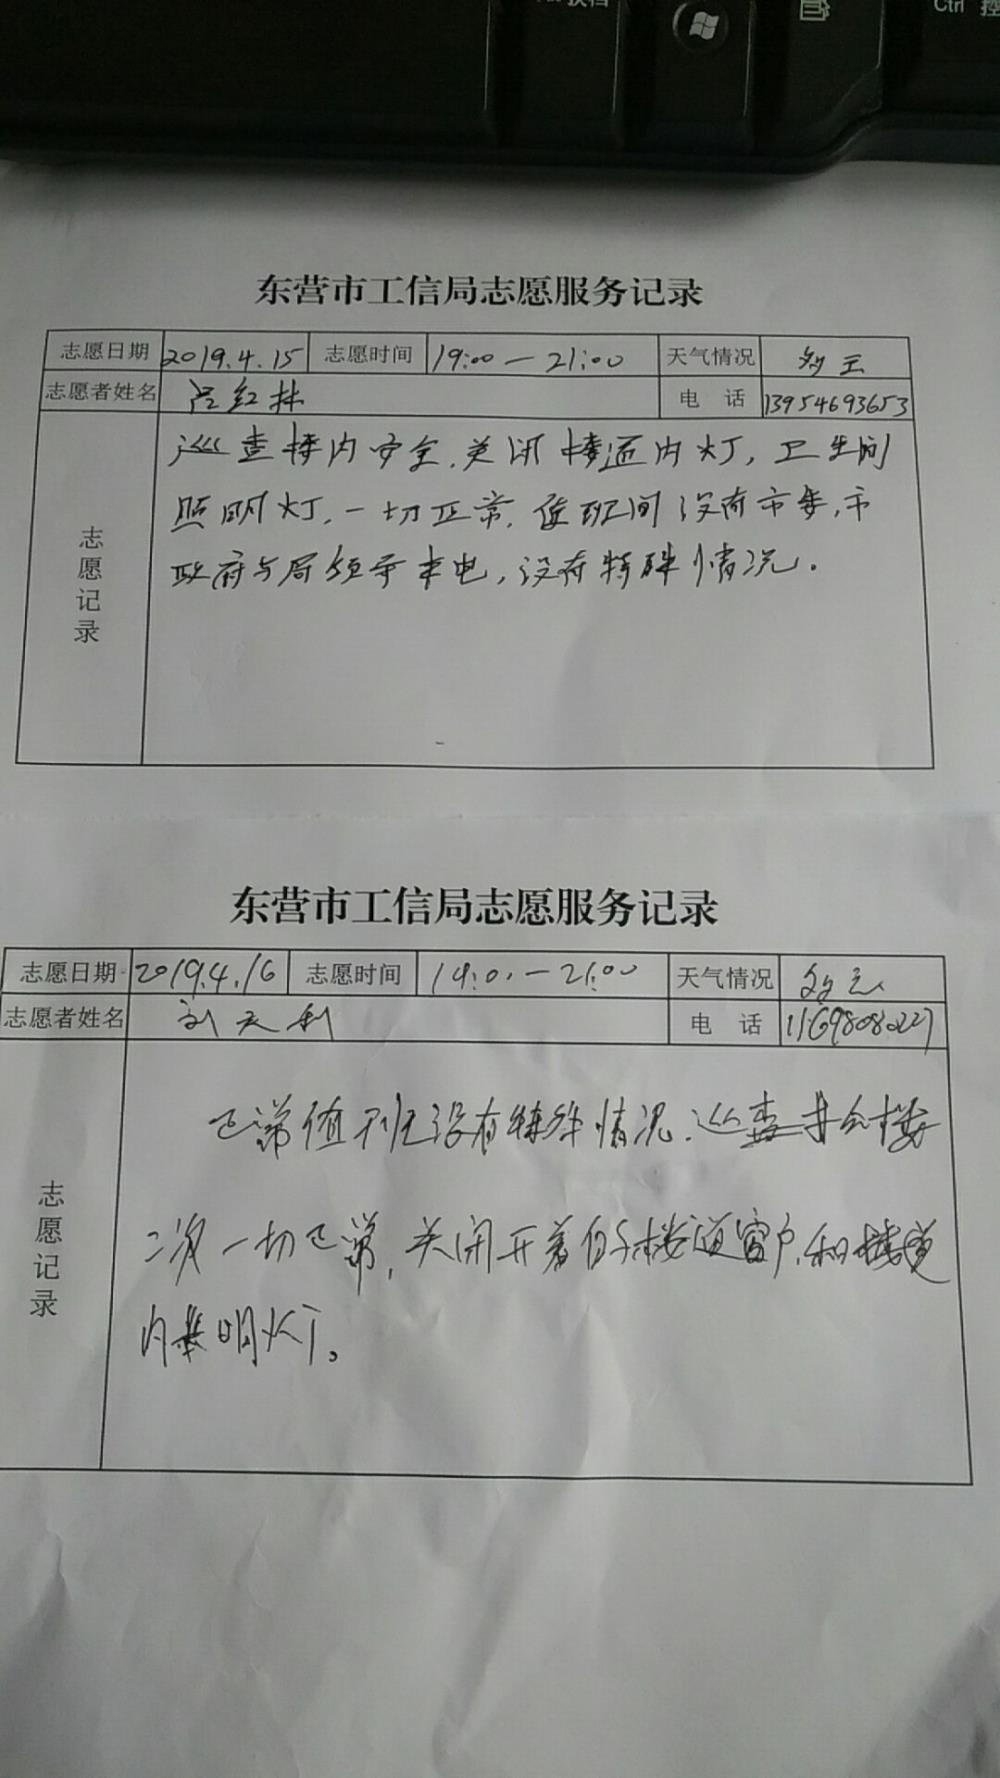 Ctrl 控
东营市工信局志愿服务记录
志愿日期 2019.4.15 志愿时间 19:00—21:00 天气情况 多云
志愿者姓名 吕红林 电 话 13954693653
志愿记录
巡查楼内安全,关闭楼道内灯,卫生间
照明灯,一切正常,值班间没有市委,市
政府与局领导来电,没有特殊情况。
东营市工信局志愿服务记录
志愿日期 2019.4.16 志愿时间 19:00—21:00 天气情况 多云
志愿者姓名 刘天利 电 话
志愿记录
正常值班没有特殊情况.巡查办公楼
二次一切正常,关闭开着的楼道窗户,和楼道
内照明灯。